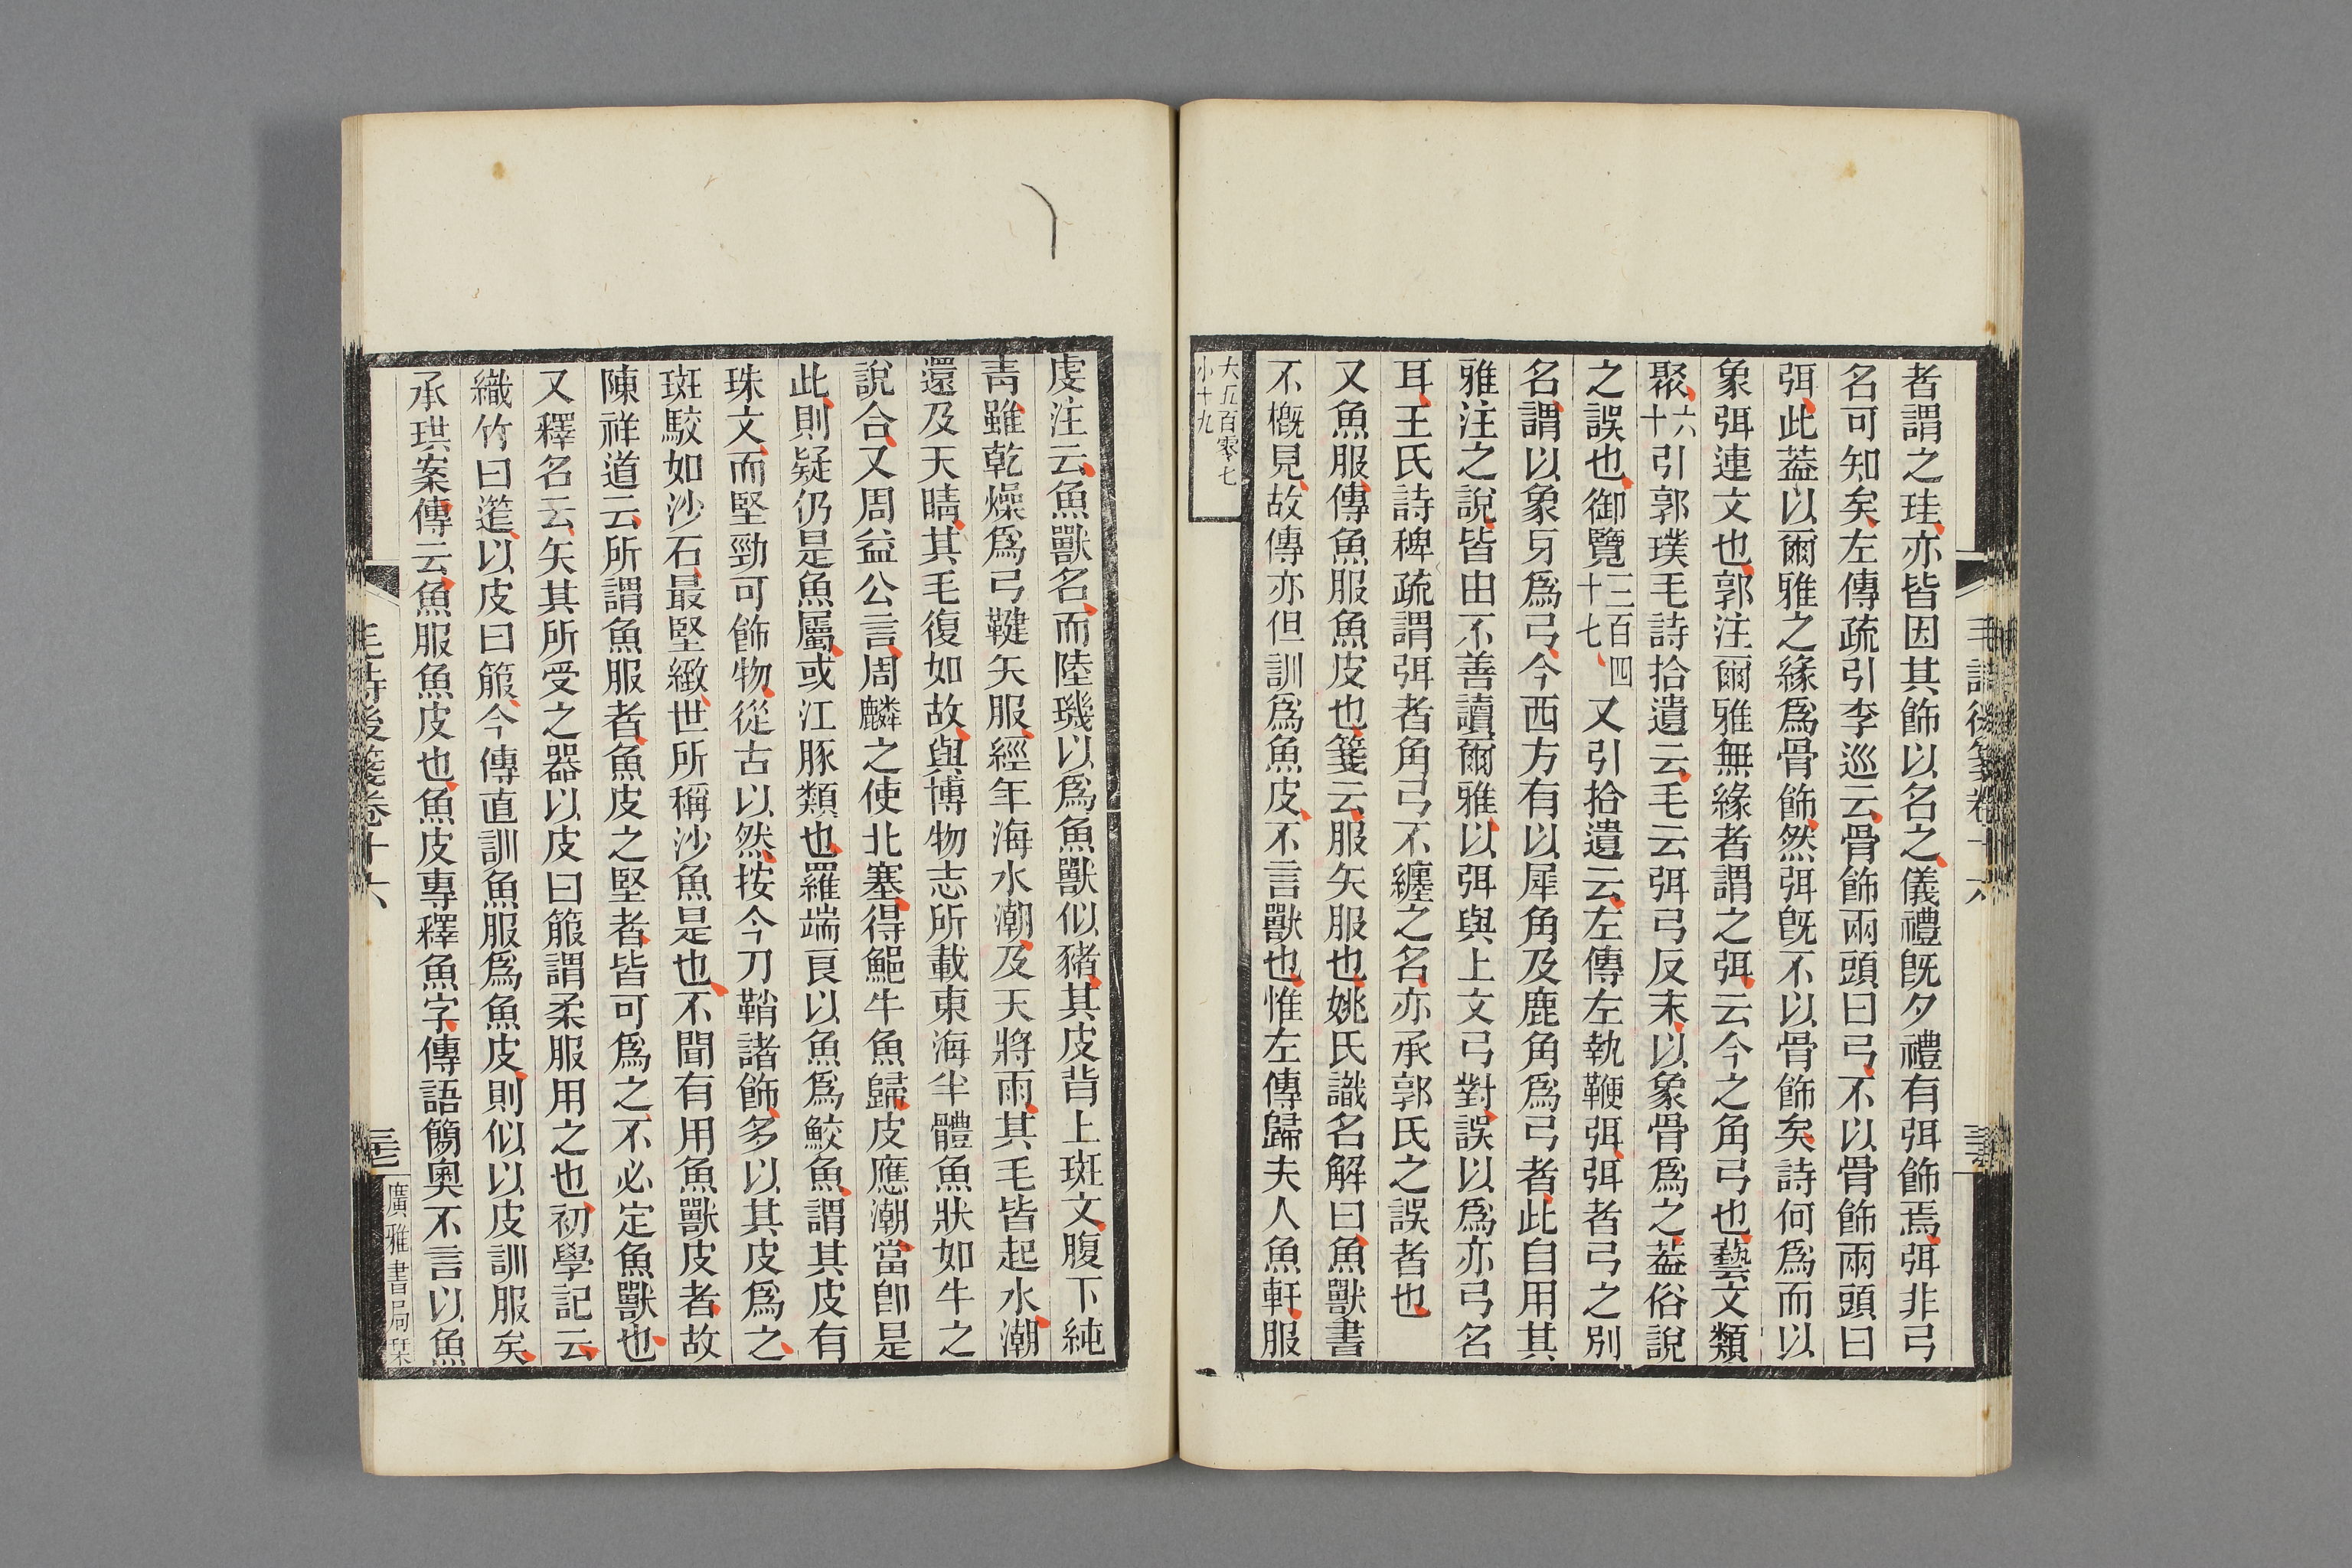 者謂之珪亦皆因其飾以名之儀禮旣夕禮有弭飾焉弭非弓
名可知矣左傳疏引李巡云骨飾兩頭曰弓不以骨飾兩頭曰
弭此葢以爾雅之緣爲骨飾然弭旣不以骨飾矣詩何爲而以
象弭連文也郭注爾雅無緣者謂之弭云今之角弓也藝文類
聚六十引郭璞毛詩拾遺云毛云弭弓反末以象骨爲之葢俗說
之誤也御覽三百四十七又引拾遺云左傳左執鞭弭弭者弓之別
名謂以象牙爲弓今西方有以犀角及鹿角爲弓者此自用其
雅注之說皆由不善讀爾雅以弭與上文弓對誤以爲亦弓名
耳王氏詩稗疏謂弭者角弓不纏之名亦承郭氏之誤者也
又魚服傳魚服魚皮也箋云服矢服也姚氏識名解曰魚獸書
不概見故傳亦但訓爲魚皮不言獸也惟左傳歸夫人魚軒服
大五百零七
小十九
虔注云魚獸名而陸璣以爲魚獸似豬其皮背上斑文腹下純
靑雖乾燥爲弓鞬矢服經年海水潮及天將雨其毛皆起水潮
還及天晴其毛復如故與博物志所載東海半體魚狀如牛之
說合又周益公言周麟之使北塞得鮑牛魚歸皮應潮當卽是
此則疑仍是魚屬或江豚類也羅端良以魚爲鮫魚謂其皮有
珠文而堅勁可飾物從古以然按今刀鞘諸飾多以其皮爲之
斑駮如沙石最堅緻世所稱沙魚是也不聞有用魚獸皮者故
陳祥道云所謂魚服者魚皮之堅者皆可爲之不必定魚獸也
又釋名云矢其所受之器以皮曰箙謂柔服用之也初學記云
織竹曰笮以皮曰箙今傳直訓魚服爲魚皮則似以皮訓服矣
承珙案傳云魚服魚皮也魚皮專釋魚字傳語簡奧不言以魚
毛詩後箋卷十六
廣雅書局栞